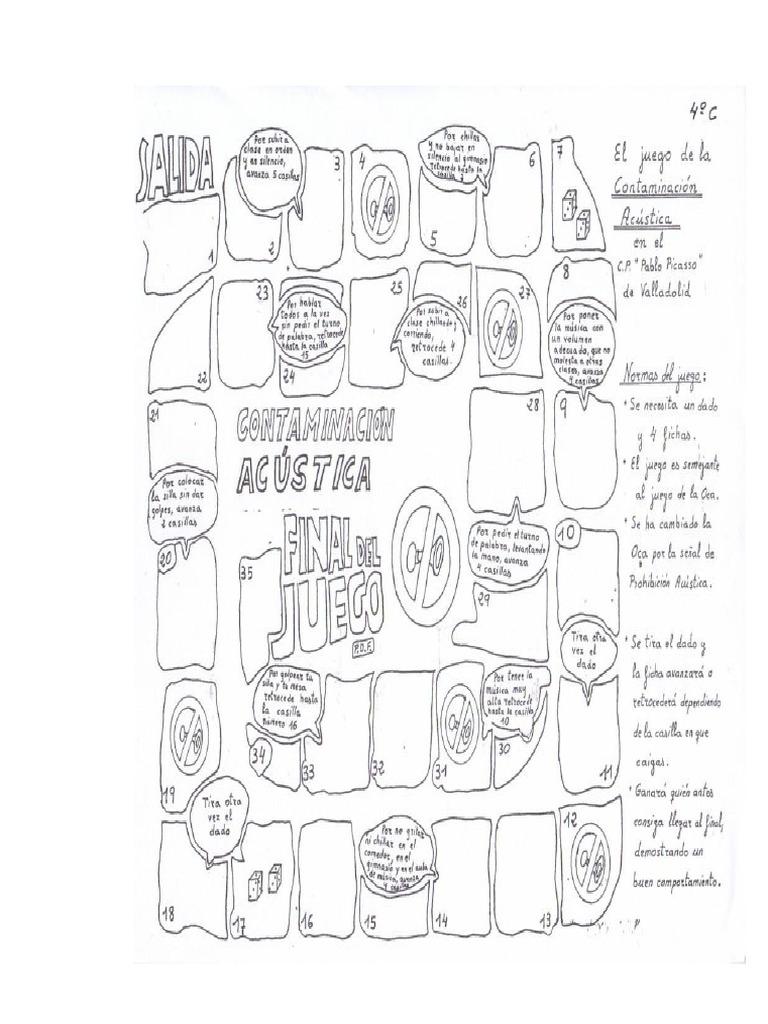 4º C
SALIDA
1
Por subir a
clase en orden
y en silencio,
avanza 5 casillas
2
3
4
Por chillar
y no bajar en
silencio al gimnasio
retrocede hasta la
casilla
5
6
7
El juego de la
Contaminación
Acústica
en el
C.P. "Pablo Picasso"
de Valladolid
8
Por poner
la música con
un volumen
adecuado, que no
molesta a otras
clases, avanza
4 casillas
9
22
23
Por hablar
todos a la vez
sin pedir el turno
de palabra, retrocede
hasta la casilla
15
24
25
Por subir a
clase chillando y
corriendo,
retrocede 4
casillas.
26
27
28
Normas del juego:
* Se necesita un dado
y 4 fichas.
* El juego es semejante
al juego de la Oca.
* Se ha cambiado la
Oca por la señal de
Prohibición Acústica.
* Se tira el dado y
la ficha avanzará o
retrocederá dependiendo
de la casilla en que
caigas.
* Ganará quién antes
consiga llegar al final,
demostrando un
buen comportamiento.
CONTAMINACIÓN
ACÚSTICA
FINAL DEL
JUEGO
P.D.F.
21
Por colocar
la silla sin dar
golpes, avanza
2 casillas
20
35
Por pedir el turno
de palabra, levantando
la mano, avanza
4 casillas
29
10
Tira otra
vez el
dado
11
19
Por golpear tu
silla y tu mesa
retrocede hasta
la casilla
número 16
34
33
32
31
Por tener la
música muy
alta retrocede
hasta la casilla
10
30
Tira otra
vez el
dado
18
17
16
Por no gritar
ni chillar en el
comedor, en el
gimnasio y en el aula
de música, avanza
4 casillas
15
14
13
12